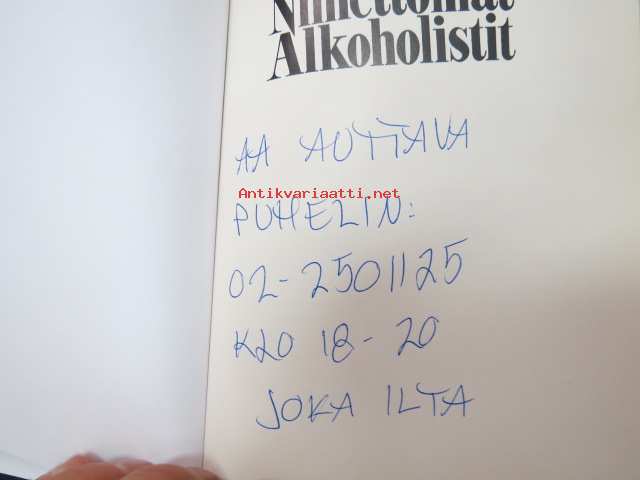 Nimettömät
Alkoholistit
AA AUTTAVA
Antikvariaatti.net
PUHELIN:
02-2501125
KLO 18-20
JOKA ILTA